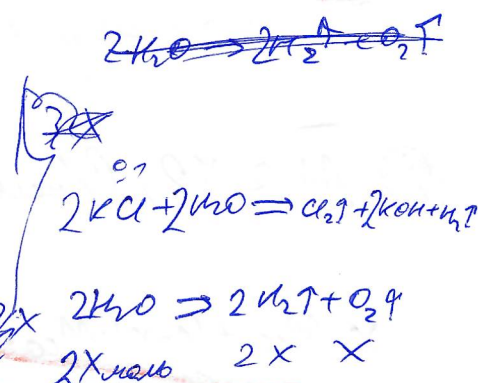 2H₂O ⇒ 2H₂↑ + O₂↑
0,1
2KCl + 2H₂O ⇒ Cl₂↑ + 2KOH + H₂↑
2H₂O ⇒ 2H₂↑ + O₂↑
2X моль 2X X